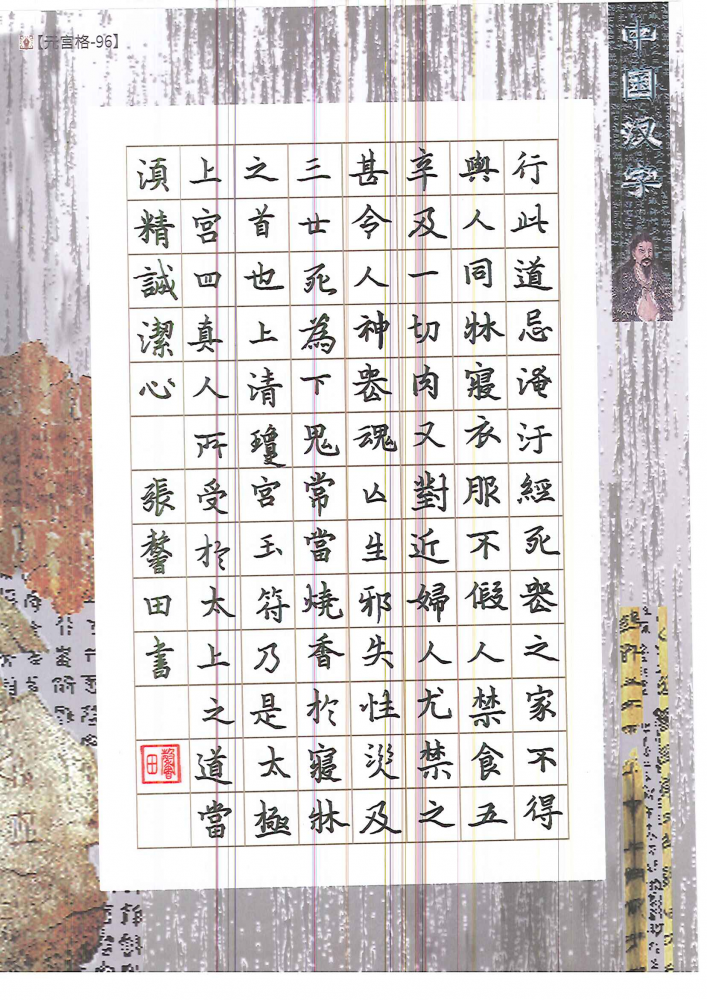 【元宫格-96】
中国汉字
行此道忌淹汙經死丧之家不得
與人同牀寝衣服不假人禁食五
辛及一切肉又對近婦人尤禁之
甚令人神丧魂亾生邪失性災及
三世死為下鬼常當燒香於寝牀
之首也上清瓊宫玉符乃是太極
上宫四真人所受於太上之道當
湏精誠潔心 張馨田書